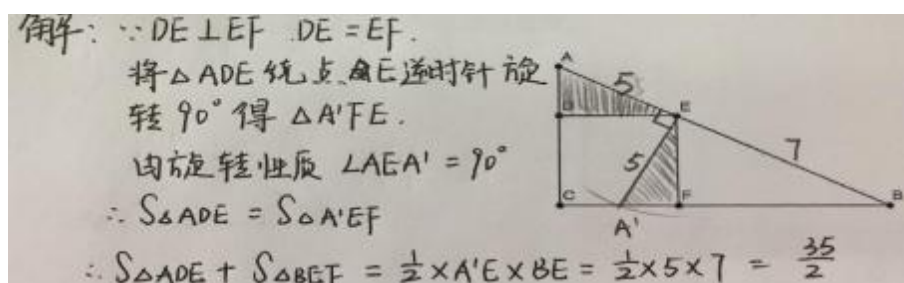 解: ∵ DE⊥EF DE=EF.
将△ADE绕点E逆时针旋
转90°得△A'FE.
由旋转性质 ∠AEA'=90°
∴ S△ADE = S△A'EF
∴ S△ADE + S△BEF = 1/2×A'E×BE = 1/2×5×7 = 35/2
A
5
D
E
5
7
C
A'
F
B